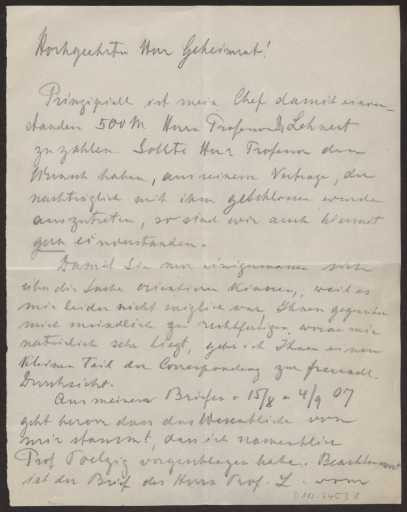 Hochgeehrter Herr Geheimrat!
Prinzipiell ist mein Chef damit einver-
standen 500 M Herrn Professor Lehnert
zu zahlen. Sollte Herr Professor den
Wunsch haben, aus seinem Vertrage, der
nachträglich mit ihm geschlossen wurde
auszutreten, so sind wir auch hiermit
gern einverstanden.
Damit Sie nun einigermassen sich
über die Sache orientieren können, weil es
mir leider nicht möglich war, Ihnen gegenüber
mich mündlich zu rechtfertigen, woran mir
natürlich sehr liegt, gebe ich Ihnen einen
kleinen Teil der Correspondenz zur freundl.
Durchsicht.
Aus meinem Briefen 15/8 4/9 07
geht hervor dass das Wesentliche von
mir stammt, dass ich namentlich
Prof Poelzig vorgeschlagen habe. Beachtenswert
ist der Brief des Herrn Prof. L. vom